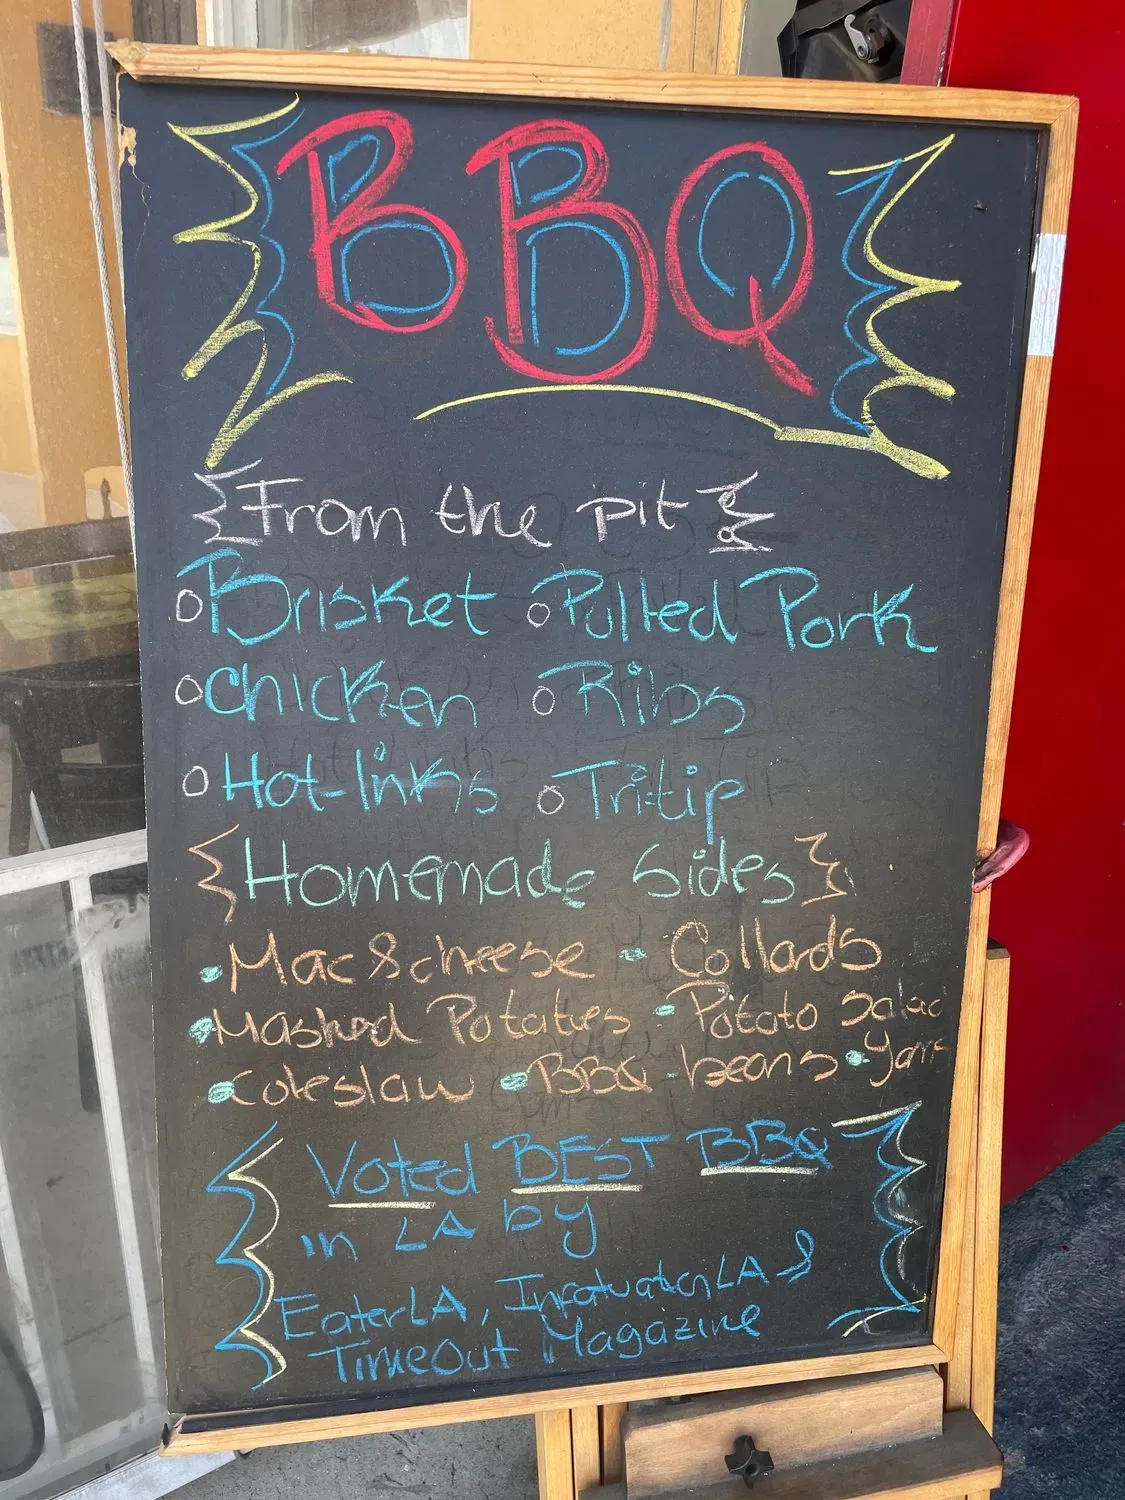 BBQ
From the pit
Brisket Pulled Pork
Chicken Ribs
Hot-links Tri-tip
Homemade Sides
Mac & cheese Collards
Mashed Potatoes Potato Salad
Coleslaw BBQ beans Yams
Voted BEST BBQ
in LA by
EaterLA, InfatuationLA &
TimeOut Magazine